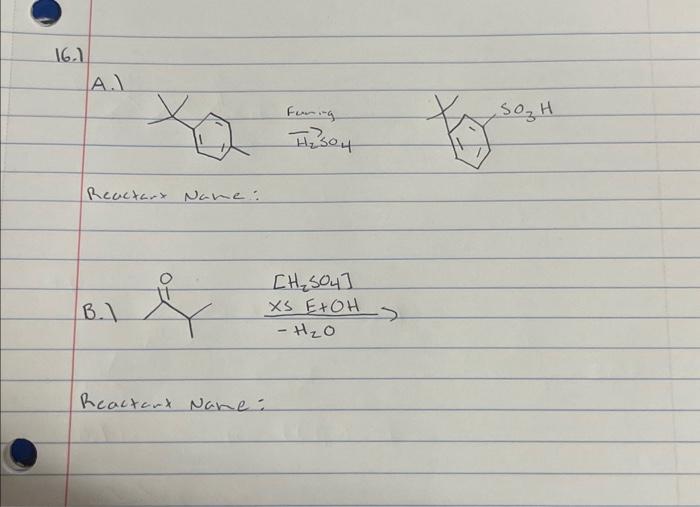 16.1
A.)
Fuming
H₂SO₄
SO₃H
Reactant Name:
O
B.)
[H₂SO₄]
XS EtOH
- H₂O
Reactant Name: